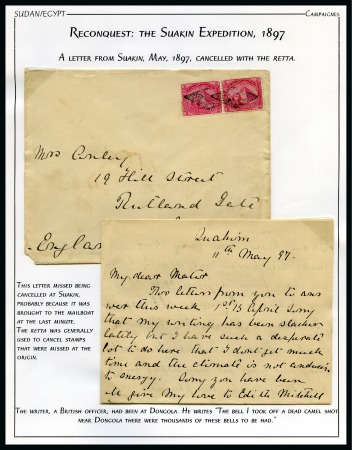 SUDAN/EGYPT
CAMPAIGNES
RECONQUEST: THE SUAKIN EXPEDITION, 1897
A LETTER FROM SUAKIN, MAY, 1897, CANCELLED WITH THE RETTA.
Mrs Conley
19 Hill Street
Rutland Gate
England
Suakim
11th May 97.
My dear Mater
Two letters from you to ans
wer this week 1st & 13 April sorry
that my writing has been slacker
lately but I have such a desperate
lot to do here that I don't get much
time and the climate is not conducive
to energy. Sorry you have been
ill give my love to Edith Mitchell
THIS LETTER MISSED BEING
CANCELLED AT SUAKIN,
PROBABLY BECAUSE IT WAS
BROUGHT TO THE MAILBOAT
AT THE LAST MINUTE.
THE RETTA WAS GENERALLY
USED TO CANCEL STAMPS
THAT WERE MISSED AT THE
ORIGIN.
THE WRITER, A BRITISH OFFICER, HAD BEEN AT DONGOLA. HE WRITES "THE BELL I TOOK OFF A DEAD CAMEL SHOT
NEAR DONGOLA THERE WERE THOUSANDS OF THESE BELLS TO BE HAD."